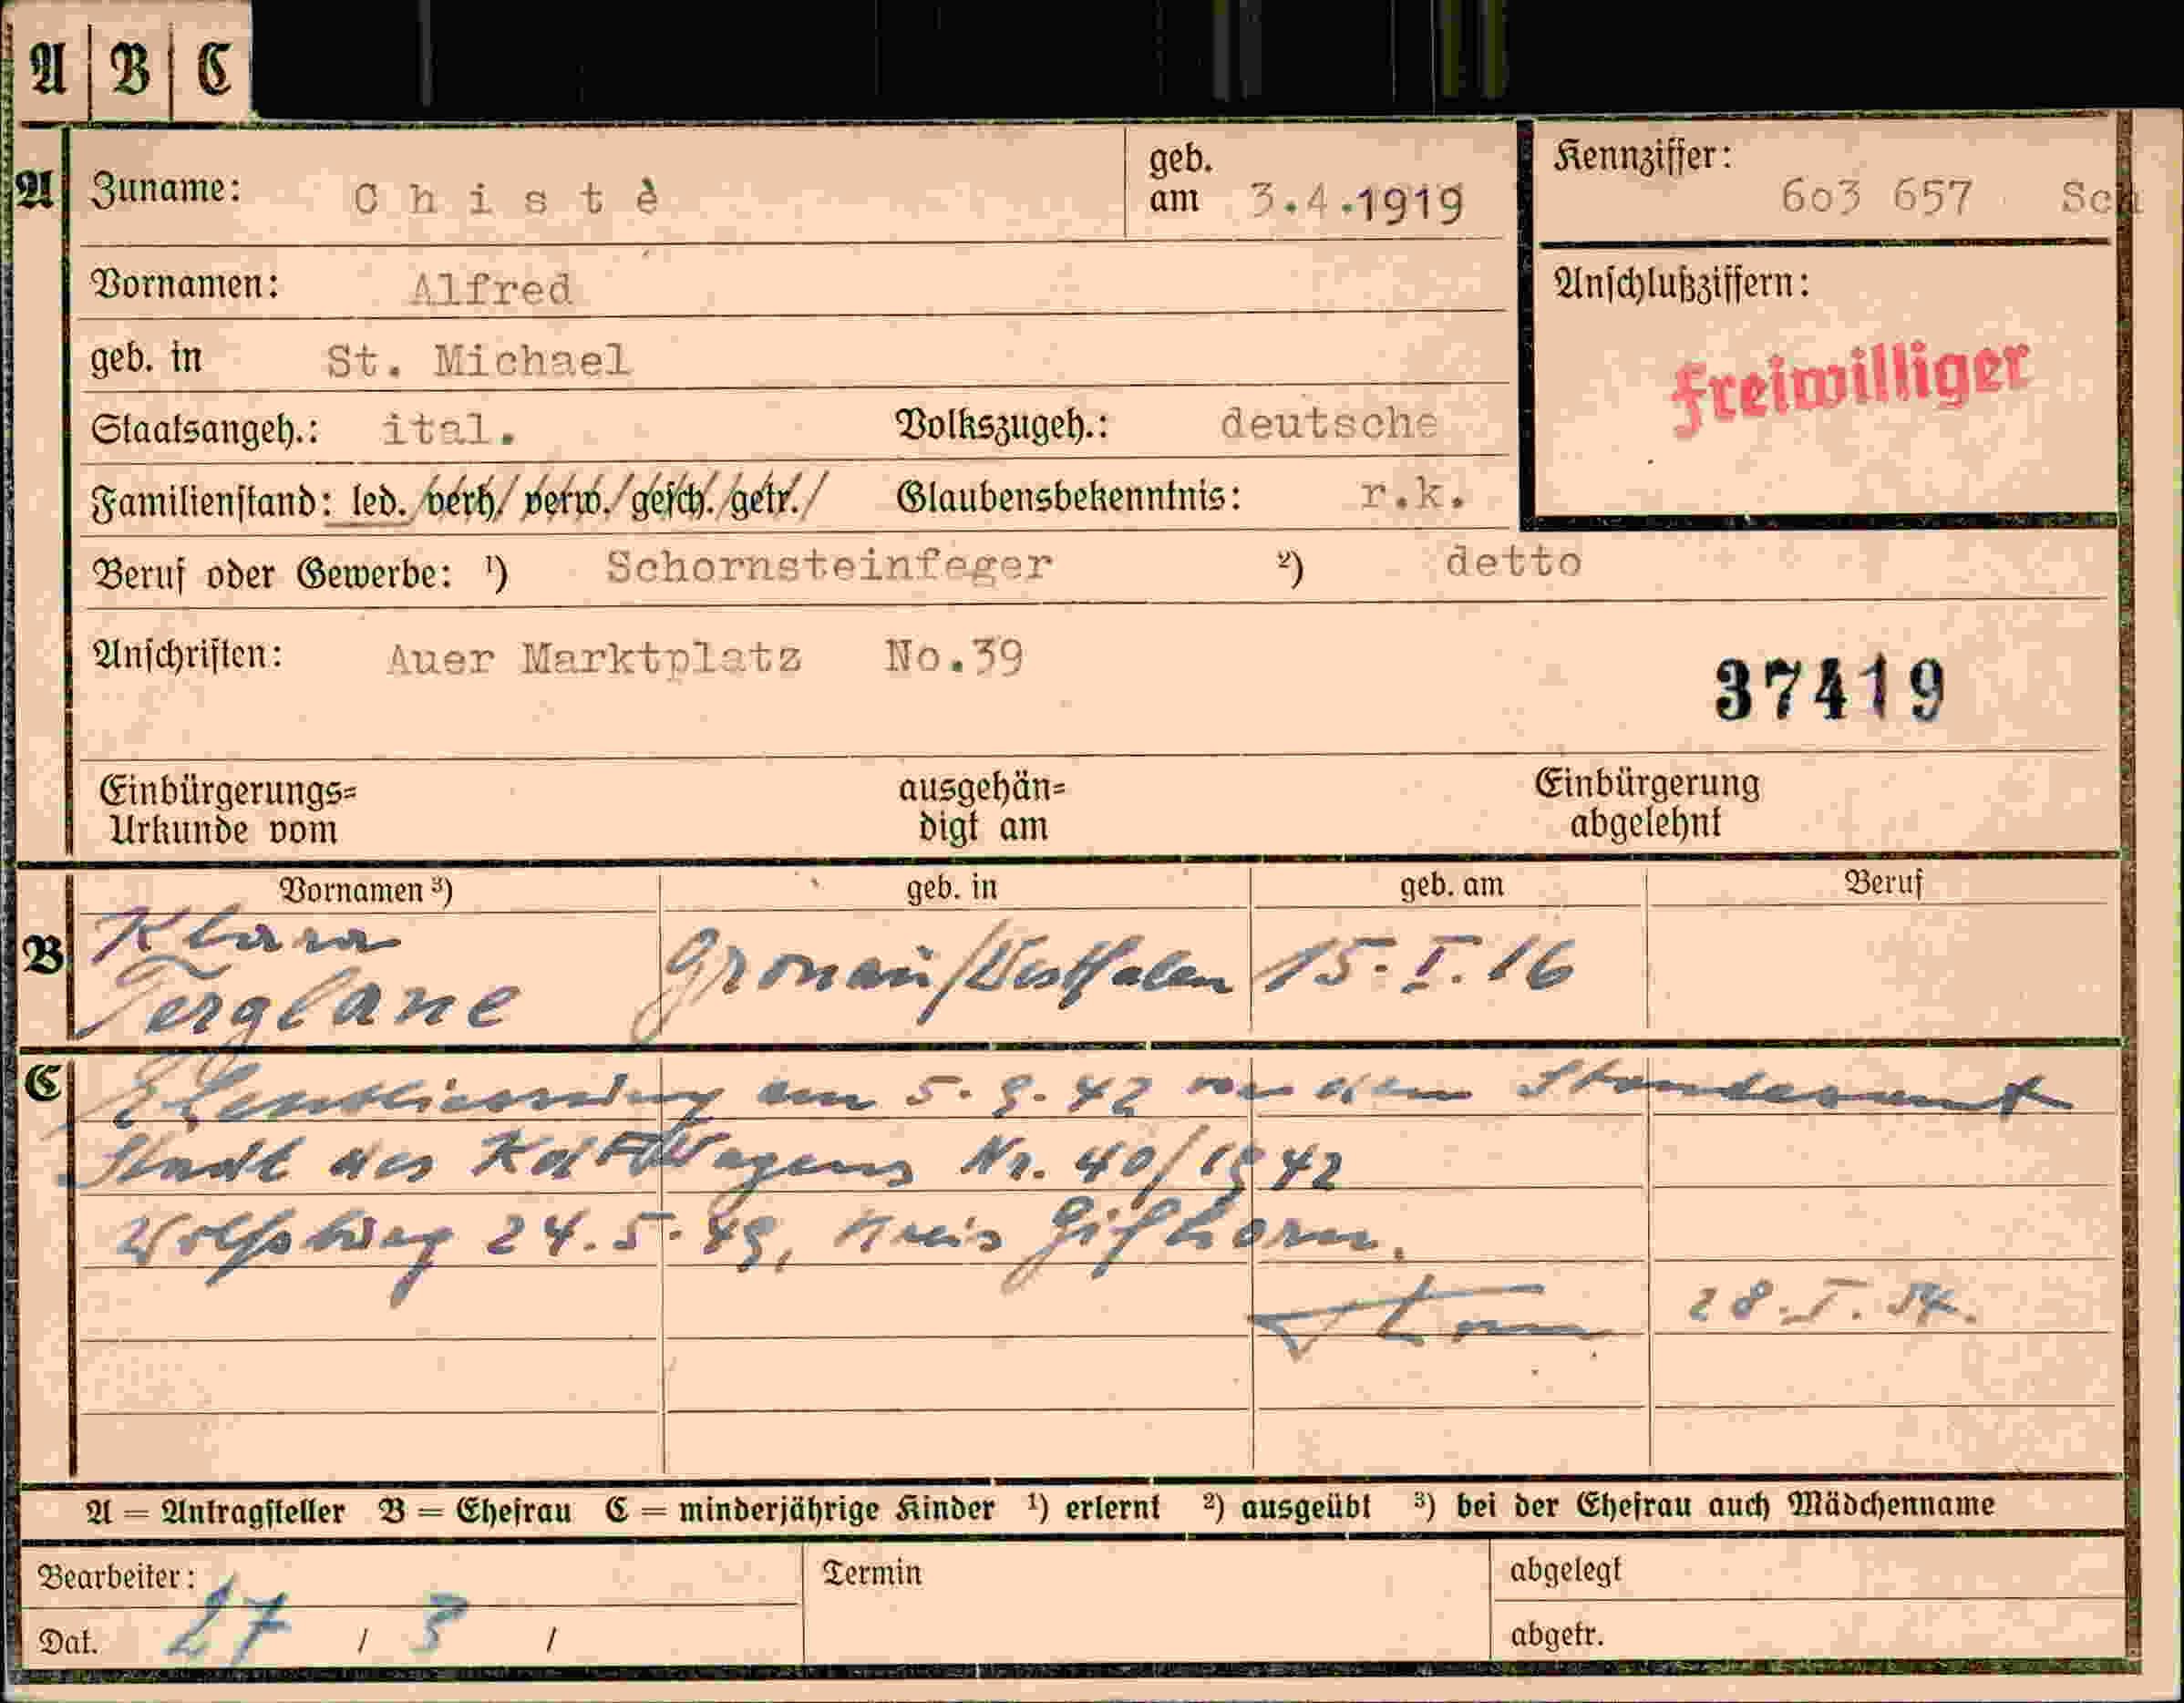 A | B | C
A Zuname: Chistè geb. am 3.4.1919 Kennziffer: 603 657 Sch
Vornamen: Alfred Anschlußziffern:
Freiwilliger
geb. in St. Michael
Staatsangeh.: ital. Volkszugeh.: deutsche
Familienstand: led./verh/verw./gesch./getr./ Glaubensbekenntnis: r.k.
Beruf oder Gewerbe: ¹) Schornsteinfeger ²) detto
Anschriften: Auer Marktplatz No.39
37419
Einbürgerungs= ausgehän= Einbürgerung
Urkunde vom digt am abgelehnt
Vornamen ³) geb. in geb. am Beruf
B Klara
Terglane Gronau/Westfalen 15.I.16
C Eheschliessung am 5.9.42 vor dem Standesamt
Stadt des KdF Wagens Nr. 40/1942
Wolfsburg 24.5.49, Kreis Gifhorn.
28.I.54.
A = Antragsteller B = Ehefrau C = minderjährige Kinder ¹) erlernt ²) ausgeübt ³) bei der Ehefrau auch Mädchenname
Bearbeiter: Termin abgelegt
Dat. 27 / 3 / abgetr.